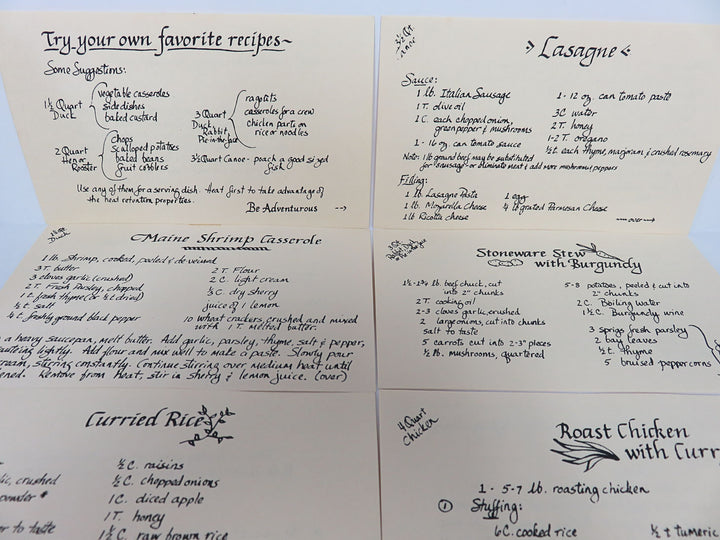 Try your own favorite recipes~
Some Suggestions:
1½ Quart Duck
vegetable casseroles
side dishes
baked custard
2 Quart Hen or Rooster
chops
scalloped potatoes
baked beans
fruit cobblers
3 Quart Duck Rabbit
ragouts
casseroles for a crew
chicken parts on
rice or noodles
3½ Quart Canoe - poach a good sized
fish
Use any of them for a serving dish. Heat first to take advantage of
the heat retention properties.
Be Adventurous -->
3½ Qt
Canoe
Lasagne
Sauce:
1 lb. Italian Sausage
1 T. olive oil
1 C. each chopped onion,
green pepper & mushrooms
1 - 16 oz. can tomato sauce
1 - 12 oz. can tomato paste
3 C water
2 T. honey
1-2 T. oregano
½ t. each thyme, marjoram, & crushed rosemary
Note: 1 lb ground beef may be substituted
for sausage - or eliminate meat & add more mushrooms & peppers
Filling:
1 lb. Lasagne Pasta
1 lb. Mozzarella Cheese
1 lb Ricotta Cheese
1 egg
4 lb grated Parmesan Cheese
over
Duck
Maine Shrimp Casserole
1 lb. Shrimp, cooked, peeled & de-veined
3 T. butter
3 cloves garlic (crushed)
2 T. Fresh Parsley, chopped
1 t. fresh thyme (or ½ t dried)
½ t. salt
¼ t. freshly ground black pepper
2 T. Flour
2 C. light cream
⅓ C. dry sherry
juice of 1 lemon
10 wheat crackers, crushed and mixed
with 1 T. melted butter.
a heavy saucepan, melt butter. Add garlic, parsley, thyme, salt & pepper,
lightly. Add flour and mix well to make a paste. Slowly pour
cream, stirring constantly. Continue stirring over medium heat until
Remove from heat, stir in sherry & lemon juice. (over)
3 Qt
Stoneware Stew
with Burgundy
1½-1¾ lb. beef chuck, cut
into 2" chunks
2 T. cooking oil
2-3 cloves garlic, crushed
2 large onions, cut into chunks
salt to taste
5 carrots cut into 2-3" pieces
½ lb. mushrooms, quartered
5-8 potatoes, peeled & cut into
2" chunks
2 C. Boiling water
1½ C. Burgundy wine
3 sprigs fresh parsley
2 bay leaves
½ t. thyme
5 bruised peppercorns
Curried Rice
crushed
powder *
to taste
½ C. raisins
½ C. chopped onions
1 C. diced apple
1 T. honey
1½ C. raw brown rice
4 Quart
Chicken
Roast Chicken
with Curr
1 - 5-7 lb. roasting chicken
① Stuffing:
6 C. cooked rice
½ t tumeric